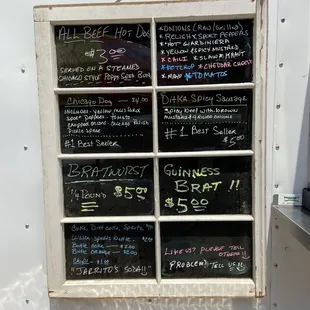 ALL BEEF HOT DOG
$3.00
SERVED ON A STEAMED
CHICAGO STYLE POPPY SEED BUN
*ONIONS (RAW/GRILLED)
*RELISH * SPORT PEPPERS
*HOT GIARDINIERA
*YELLOW & SPICY MUSTARD
*CHILI *SLAW *KRAUT
*KETCHUP *CHEDDAR CHEESE
*TOMATOES
CHICAGO DOG - $4.00
INCLUDES - YELLOW MUSTARD
SPORT PEPPERS - TOMATO
CHOPPED ONIONS - RELISH
PICKLE SPEAR
#1 BEST SELLER
DITKA SPICY SAUSAGE
BEEF WITH BROWN
MUSTARD & GRILLED ONIONS
#1 BEST SELLER
BRATWURST
1/4 POUND $5.00
GUINNESS
BRAT !!
$5.00
COKE, DIET COKE, SPRITE
BOTTLE
BOTTLE
"JARRITO'S SODA"!!
LIKE US? PLEASE TELL
OTHERS!!
PROBLEM? TELL US!!